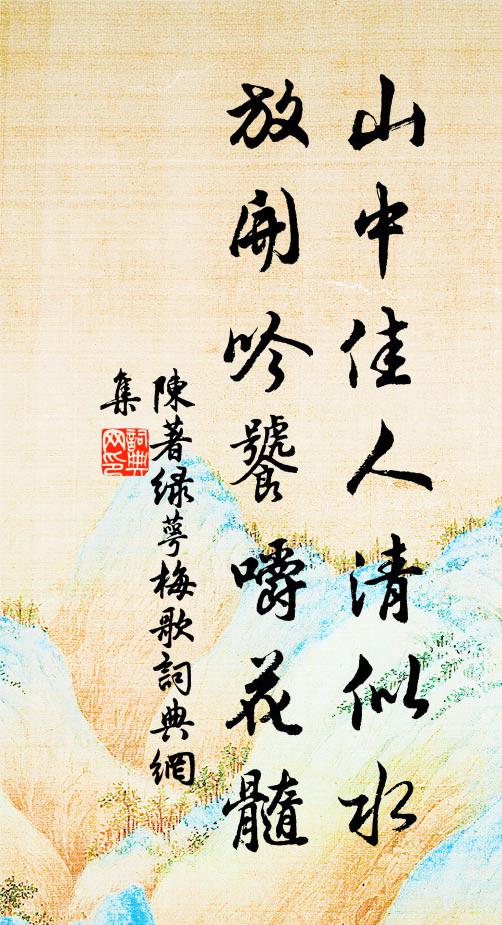 山中佳人清似水
放開吟饕嚼花髓
陳著綠萼梅歌詞典網
集
詞典
网印